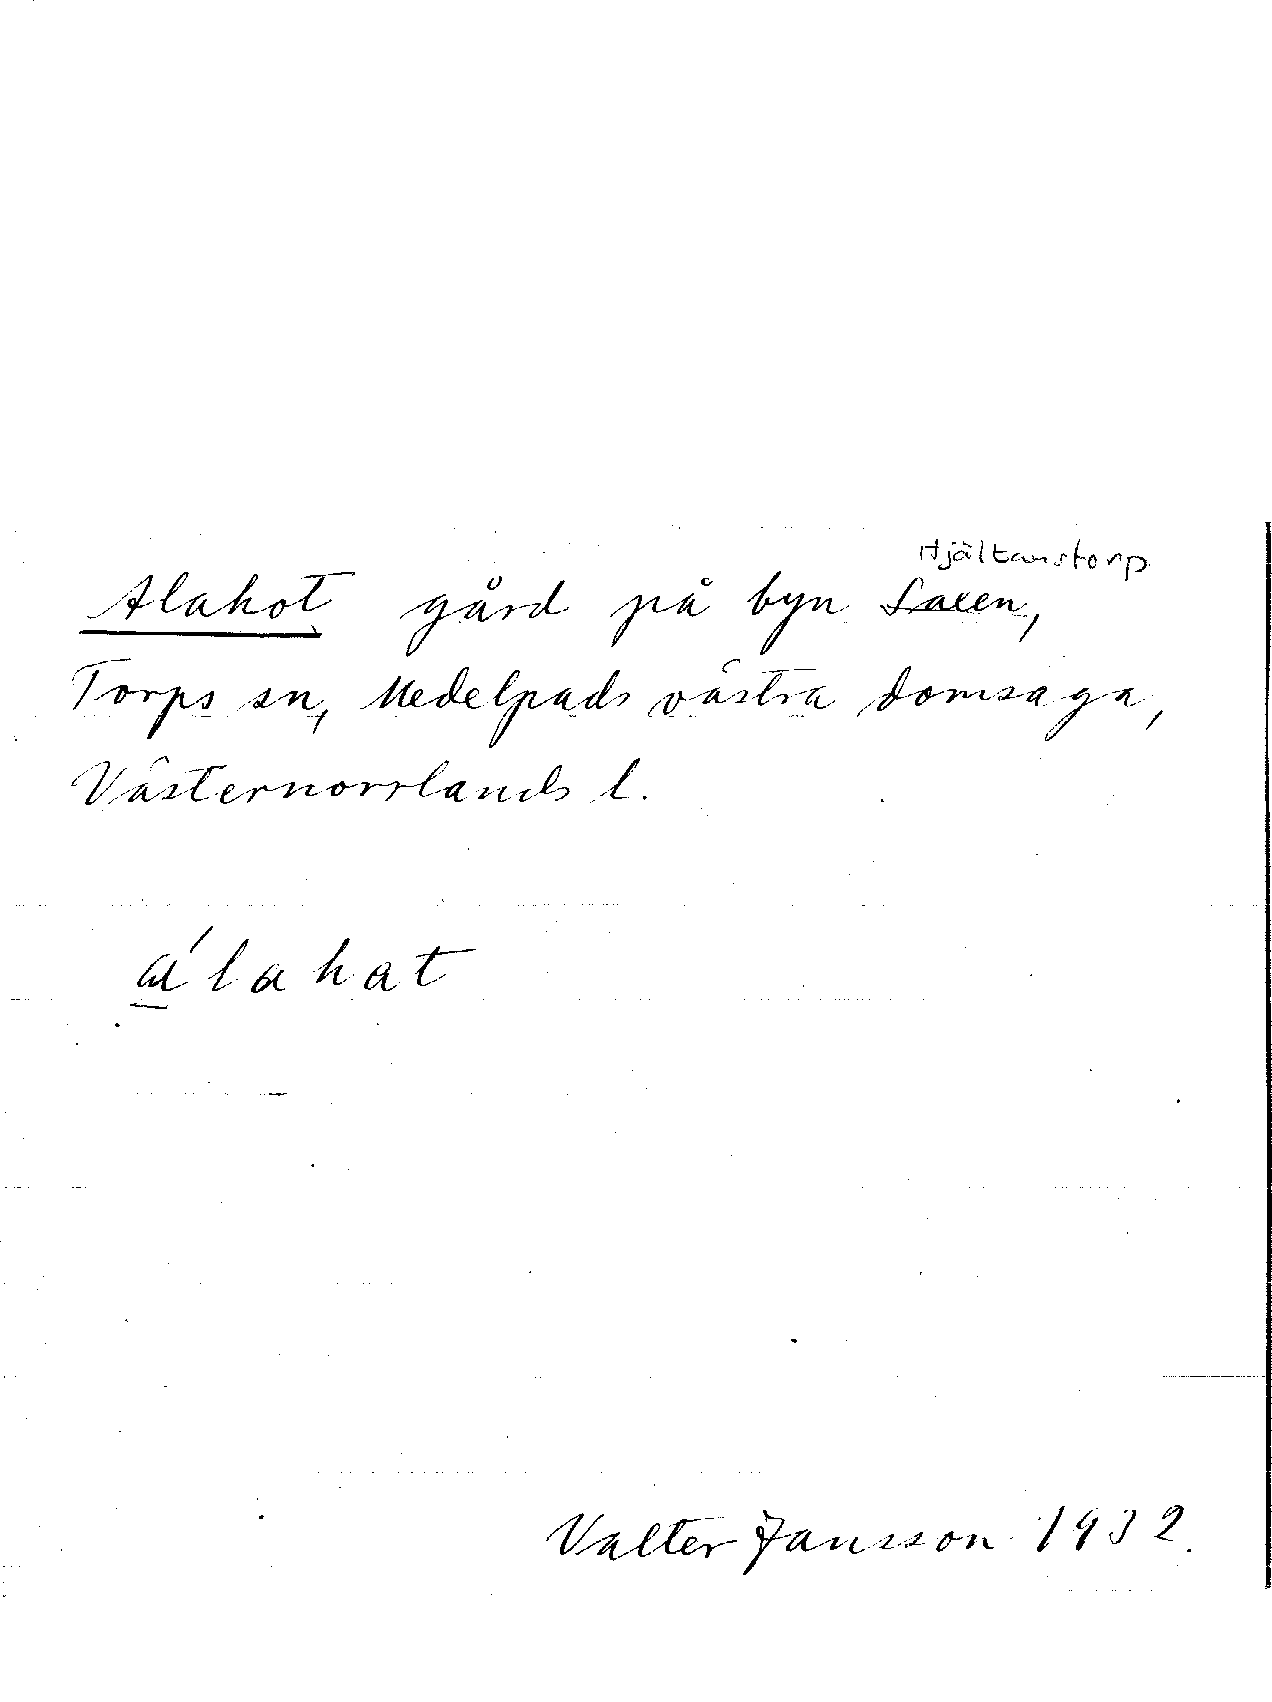 Hjältanstorp
Alahot gård på byn Saxen,
Torps sn, Medelpads västra domsaga,
Västernorrlands l.
álahat
Valter Jansson 1932.